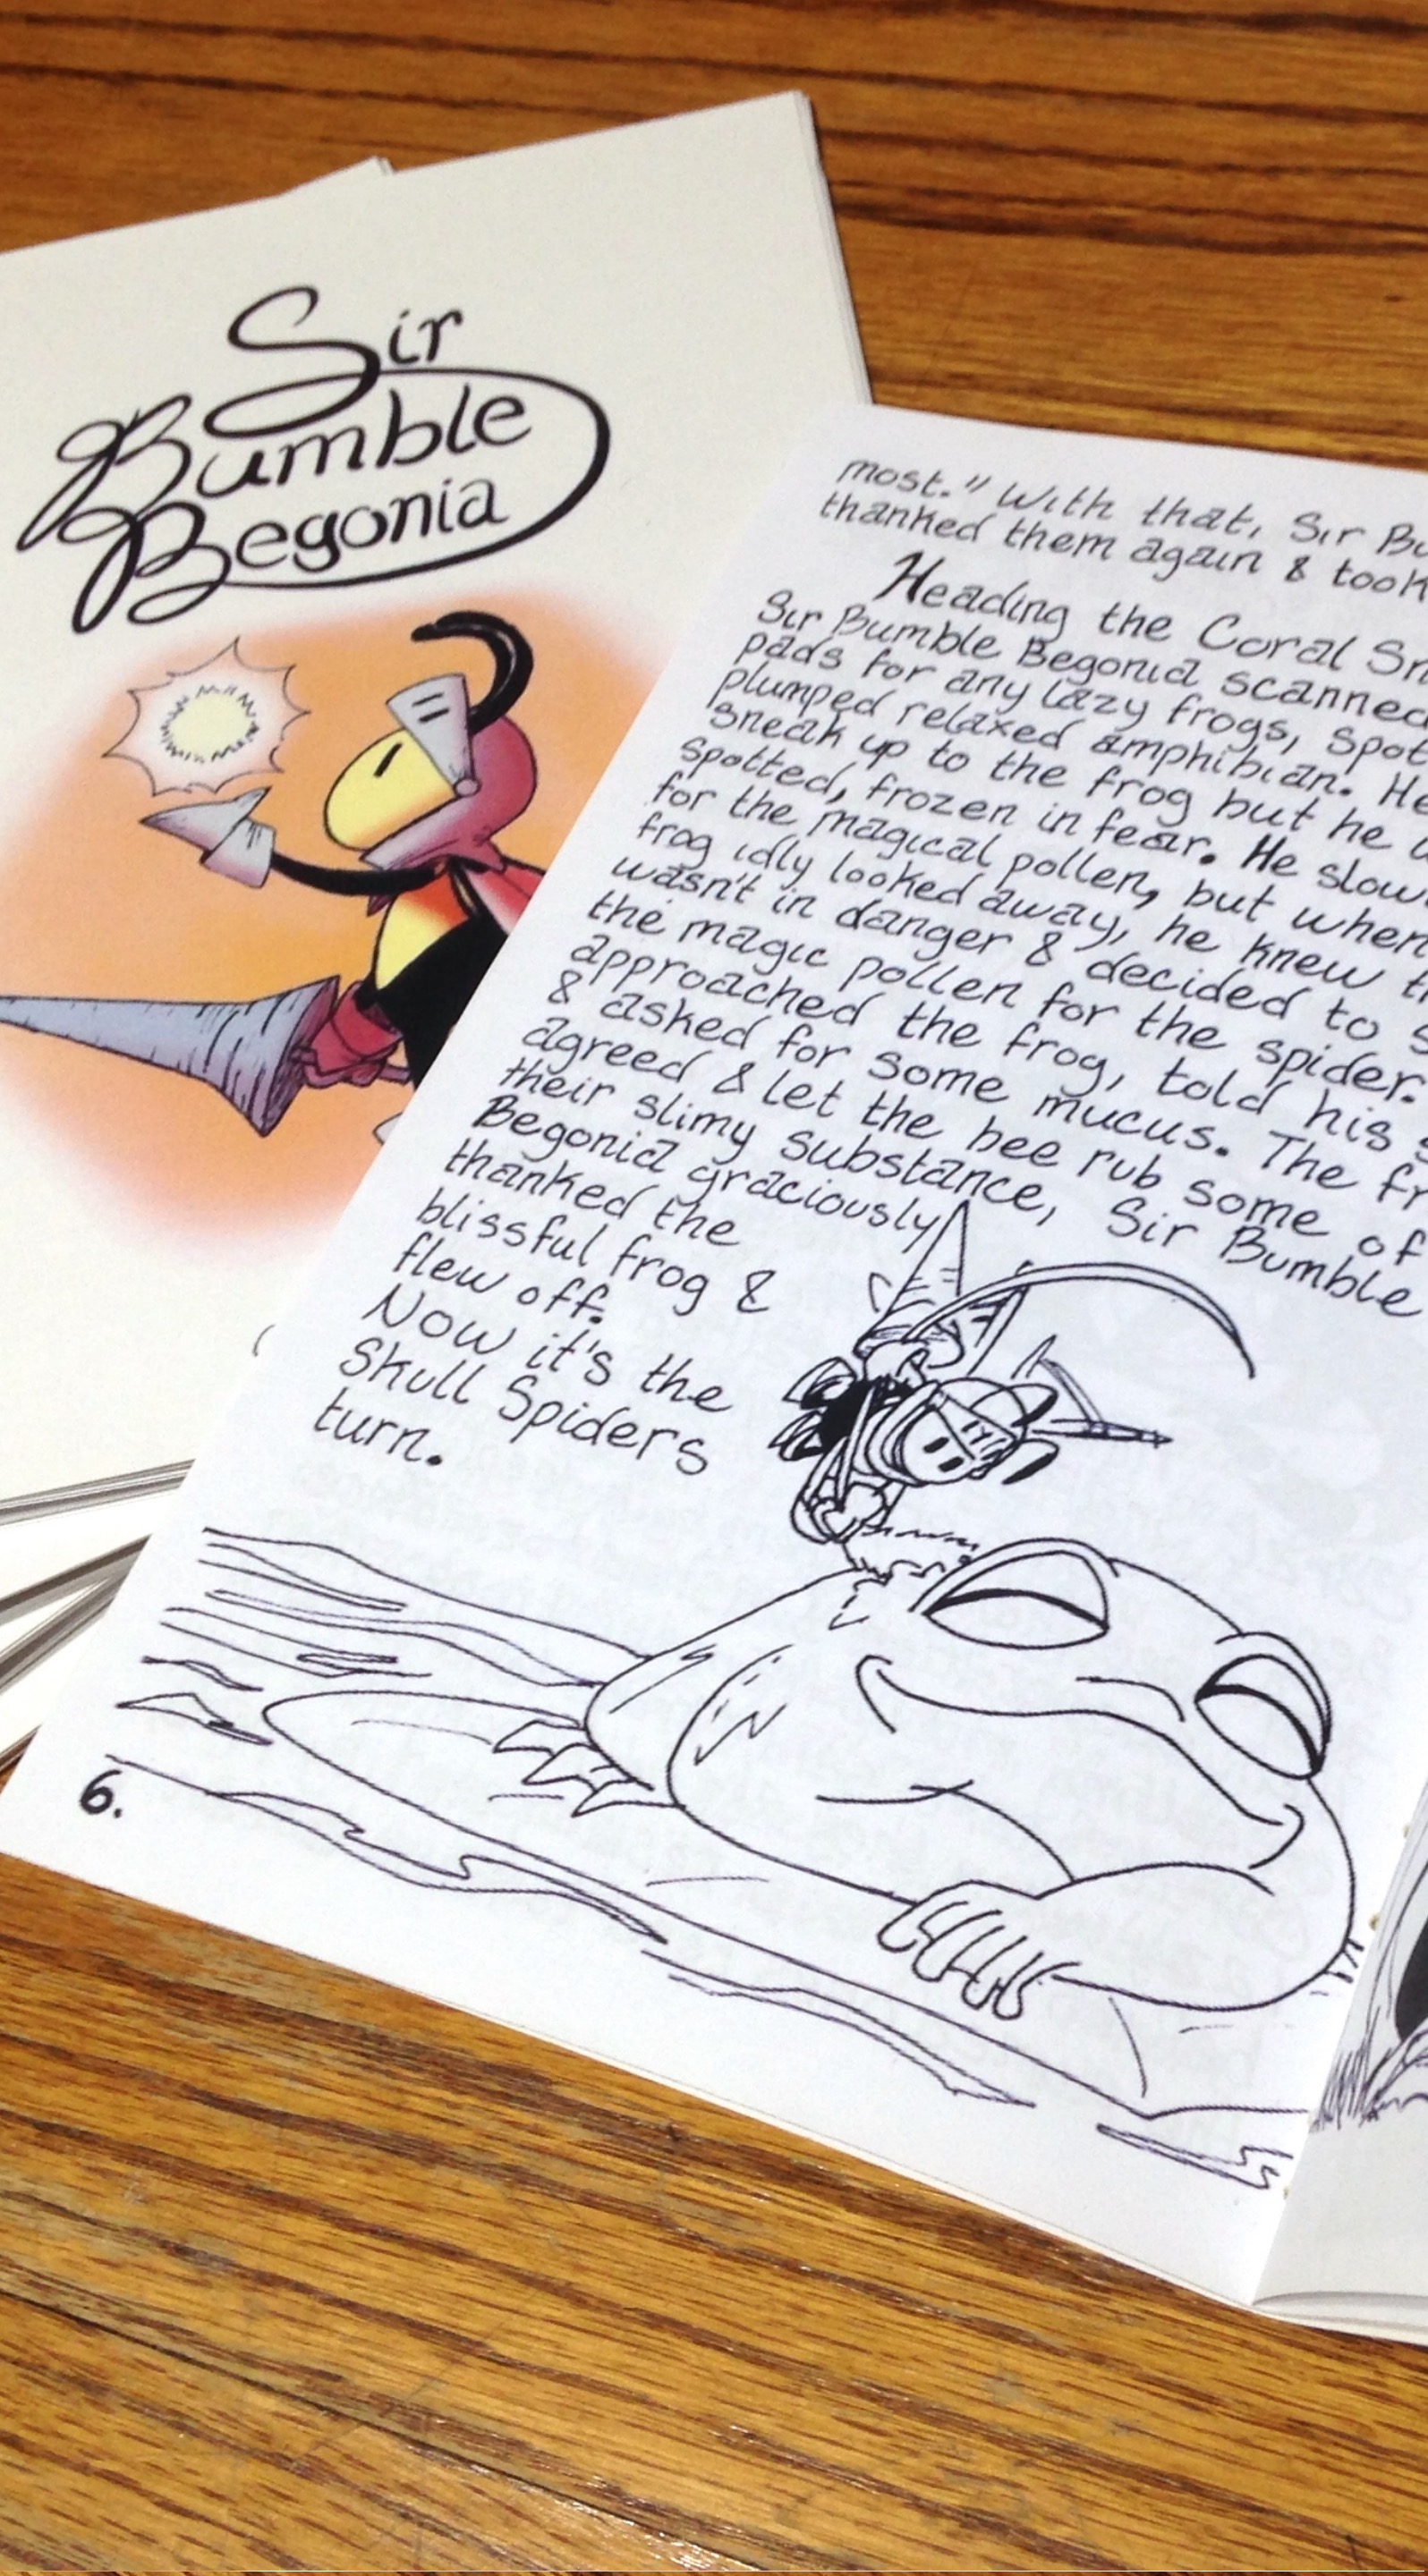 Sir
Bumble
Begonia
most." With that, Sir
thanked them again & took
Heading the Coral
Sir Bumble Begonia scanned
pads for any lazy frogs,
plumped relaxed amphibian. He
sneak up to the frog but he
spotted, frozen in fear. He
for the magical pollen, but when
frog idly looked away, he knew
wasn't in danger & decided to
the magic pollen for the spider.
approached the frog, told his
& asked for some mucus. The
agreed & let the bee rub some of
their slimy substance, Sir Bumble
Begonia graciously
thanked the
blissful frog &
flew off.
Now it's the
Skull Spiders
turn.
6.